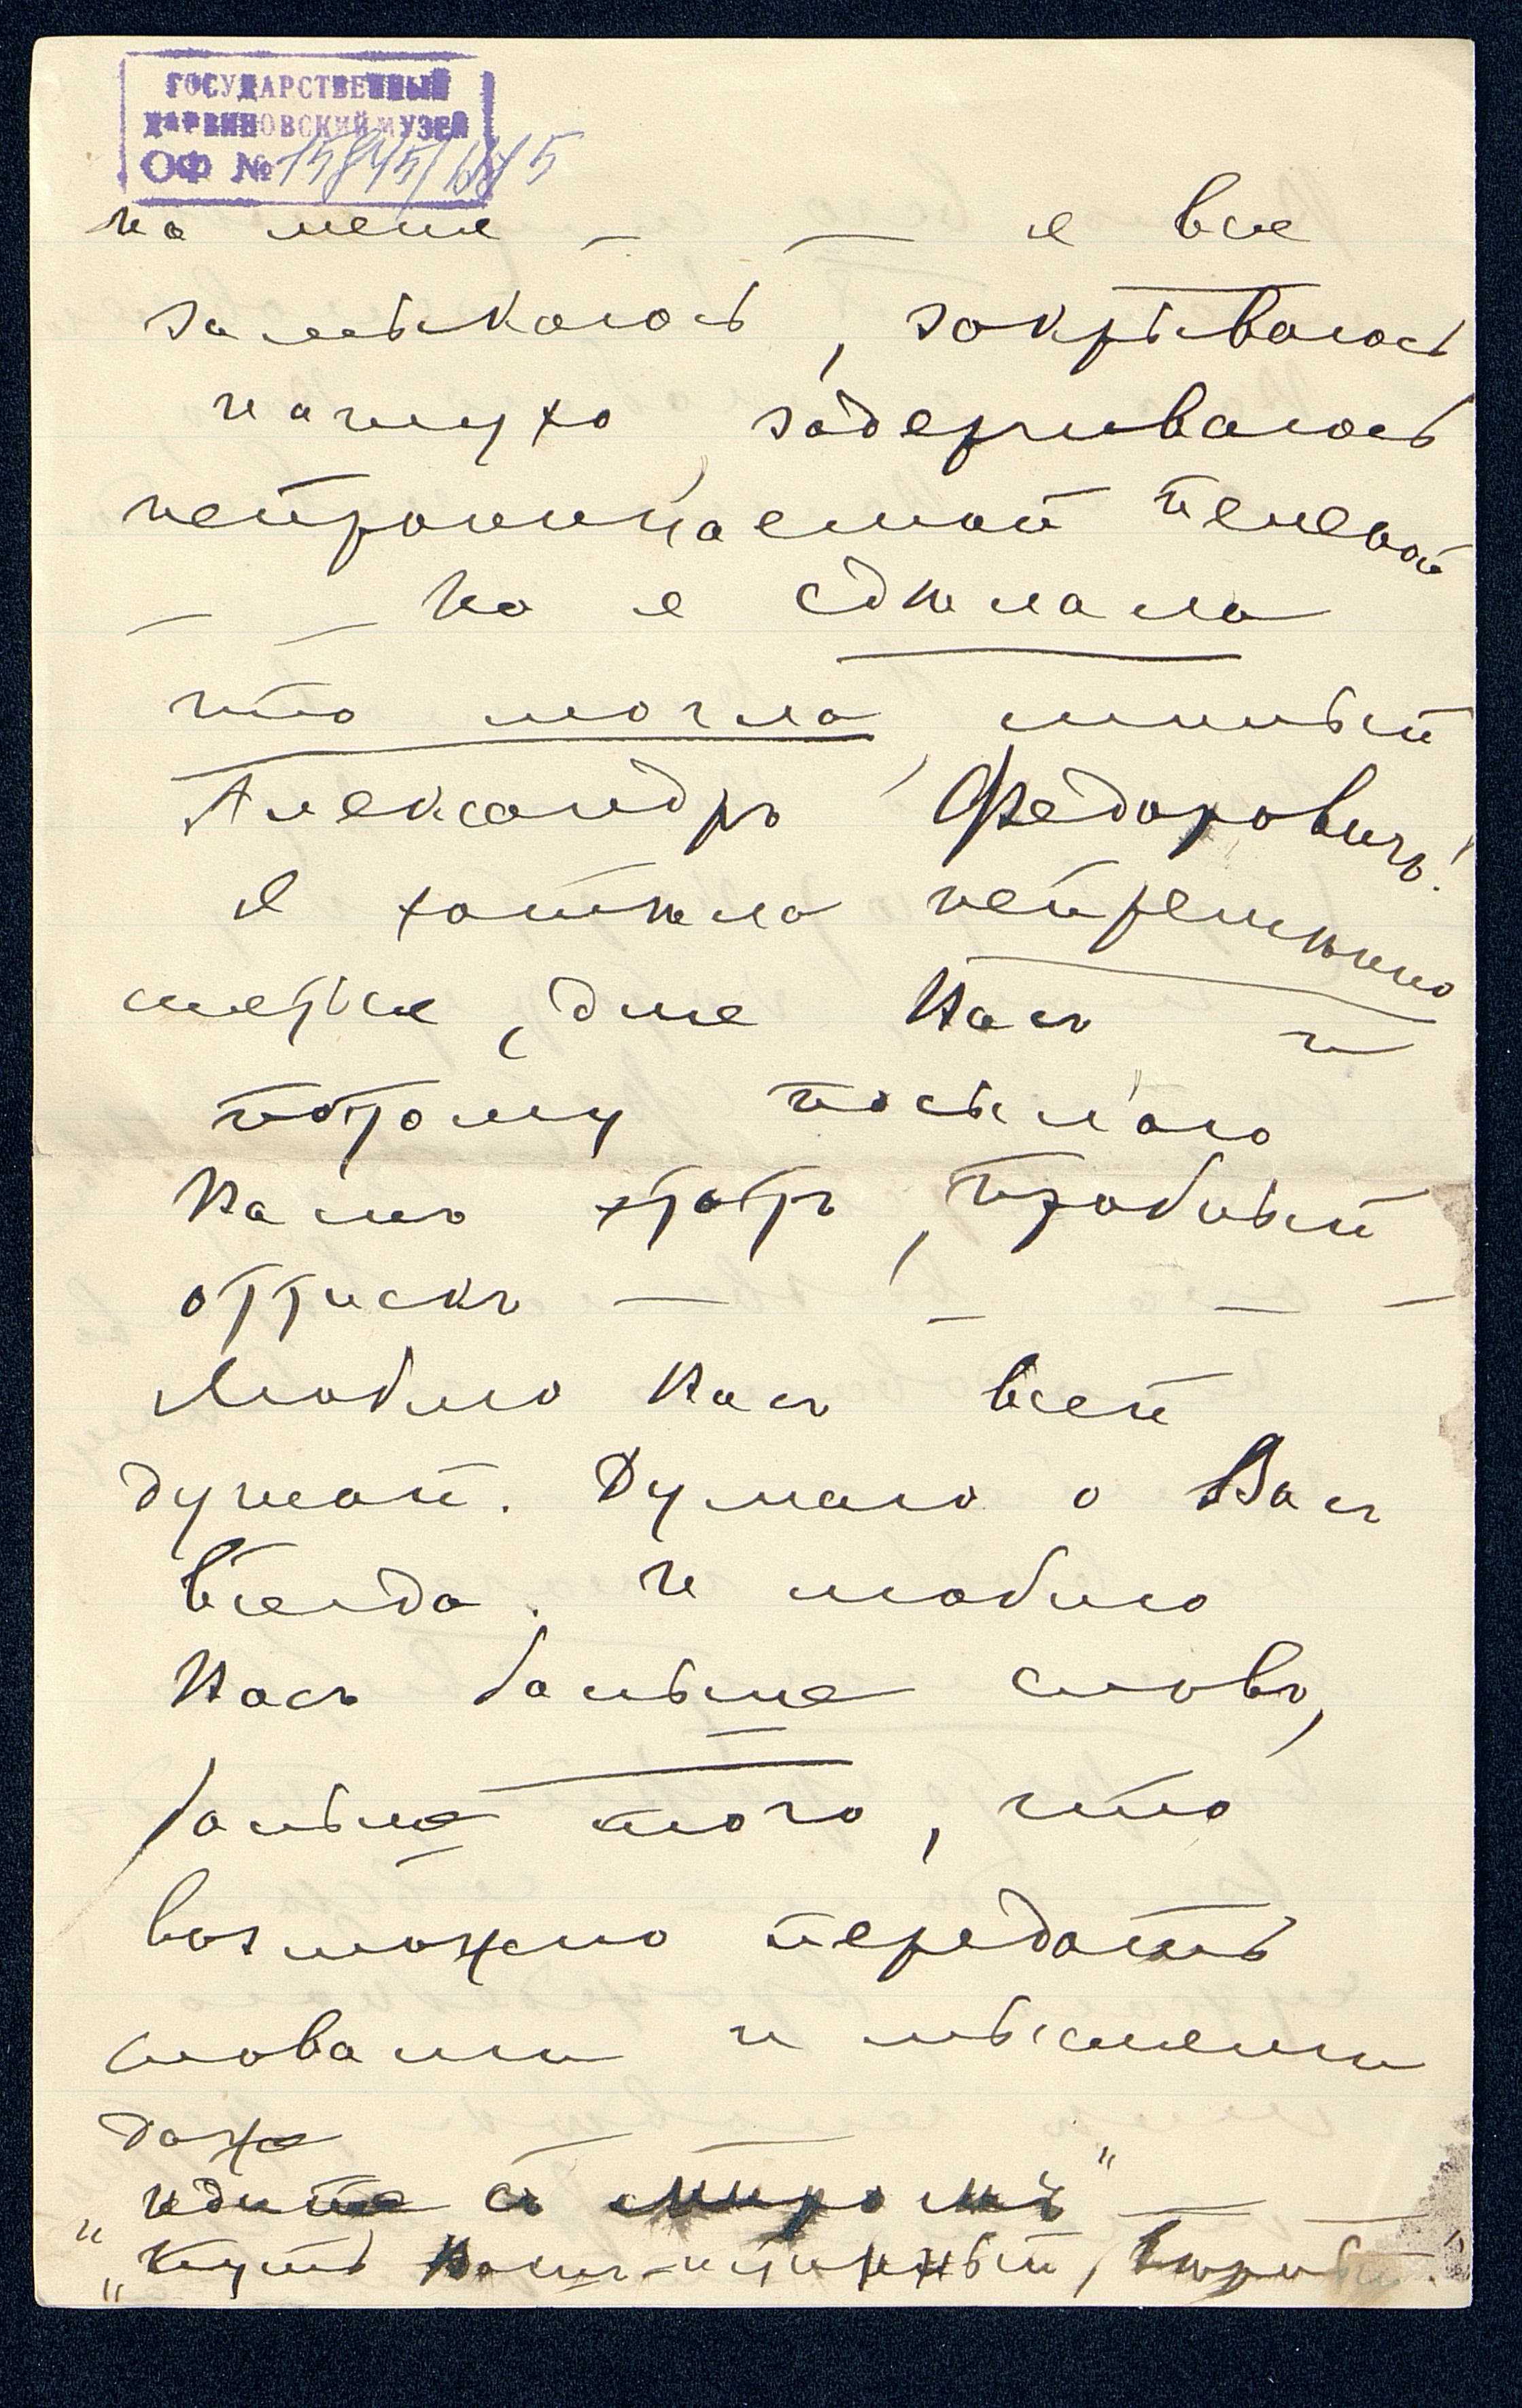 ГОСУДАРСТВЕННЫЙ
ДАРВИНОВСКИЙ МУЗЕЙ
ОФ № 15845/
на меня — — я вся
замыкаюсь, закрываюсь
наглухо, задергиваюсь
непроницаемой пеленой
— — но я сдѣлала
что могла, милый
Александръ Федоровичъ!
Я хотѣла непремѣнно
снятся, для Васъ и
потому посылаю
Вамъ этотъ, пробный
оттискъ — — — —
Люблю Васъ всей
душой. Думаю о Васъ
всегда. и люблю
Васъ больше словъ,
больше того, что
возможно передать
словами и мыслями
даже — —
„идите съ миромъ" — —
„путь Вашъ истинный, вѣрный."